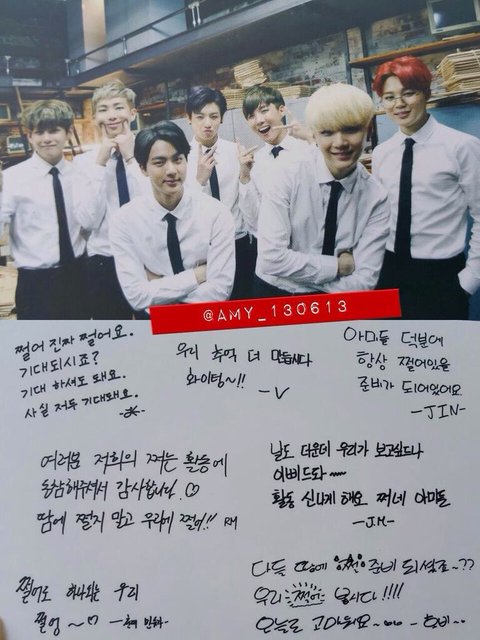 @AMY_130613
쩔어 진짜 쩔어요.
기대되시죠?
기대 하셔도 돼요.
사실 저두 기대돼요.
우리 추억 더 만듭시다
화이팅~!!
-V
아미들 덕분에
항상 쩔어있을
준비가 되어있어요
-JIN-
여러분 저희의 쩌는 활동에
동참해주셔서 감사합니다.♡
땀에 쩔지 말고 우리에 쩔어!! RM
날도 더운데 우리가 보고싶드나
이삐드롸~~~
활동 신나게 해요 쩌네 아미들
-JM-
쩔어도 하나되는 우리
쩔엉~♡
다들 땀에 쩐 준비 되셨죠~??
우리 쩔어 봅시다!!!!
오늘도 고마워요~ - 호비..